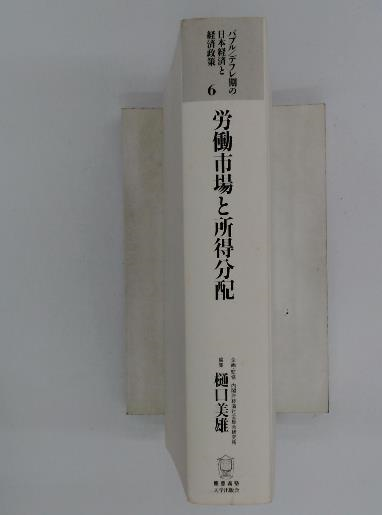 バブル/デフレ期の
日本経済と
経済政策
6
労働市場と所得分配
企画・監修 内閣府経済社会総合研究所
編集
樋口美雄
慶應義塾
大学出版会